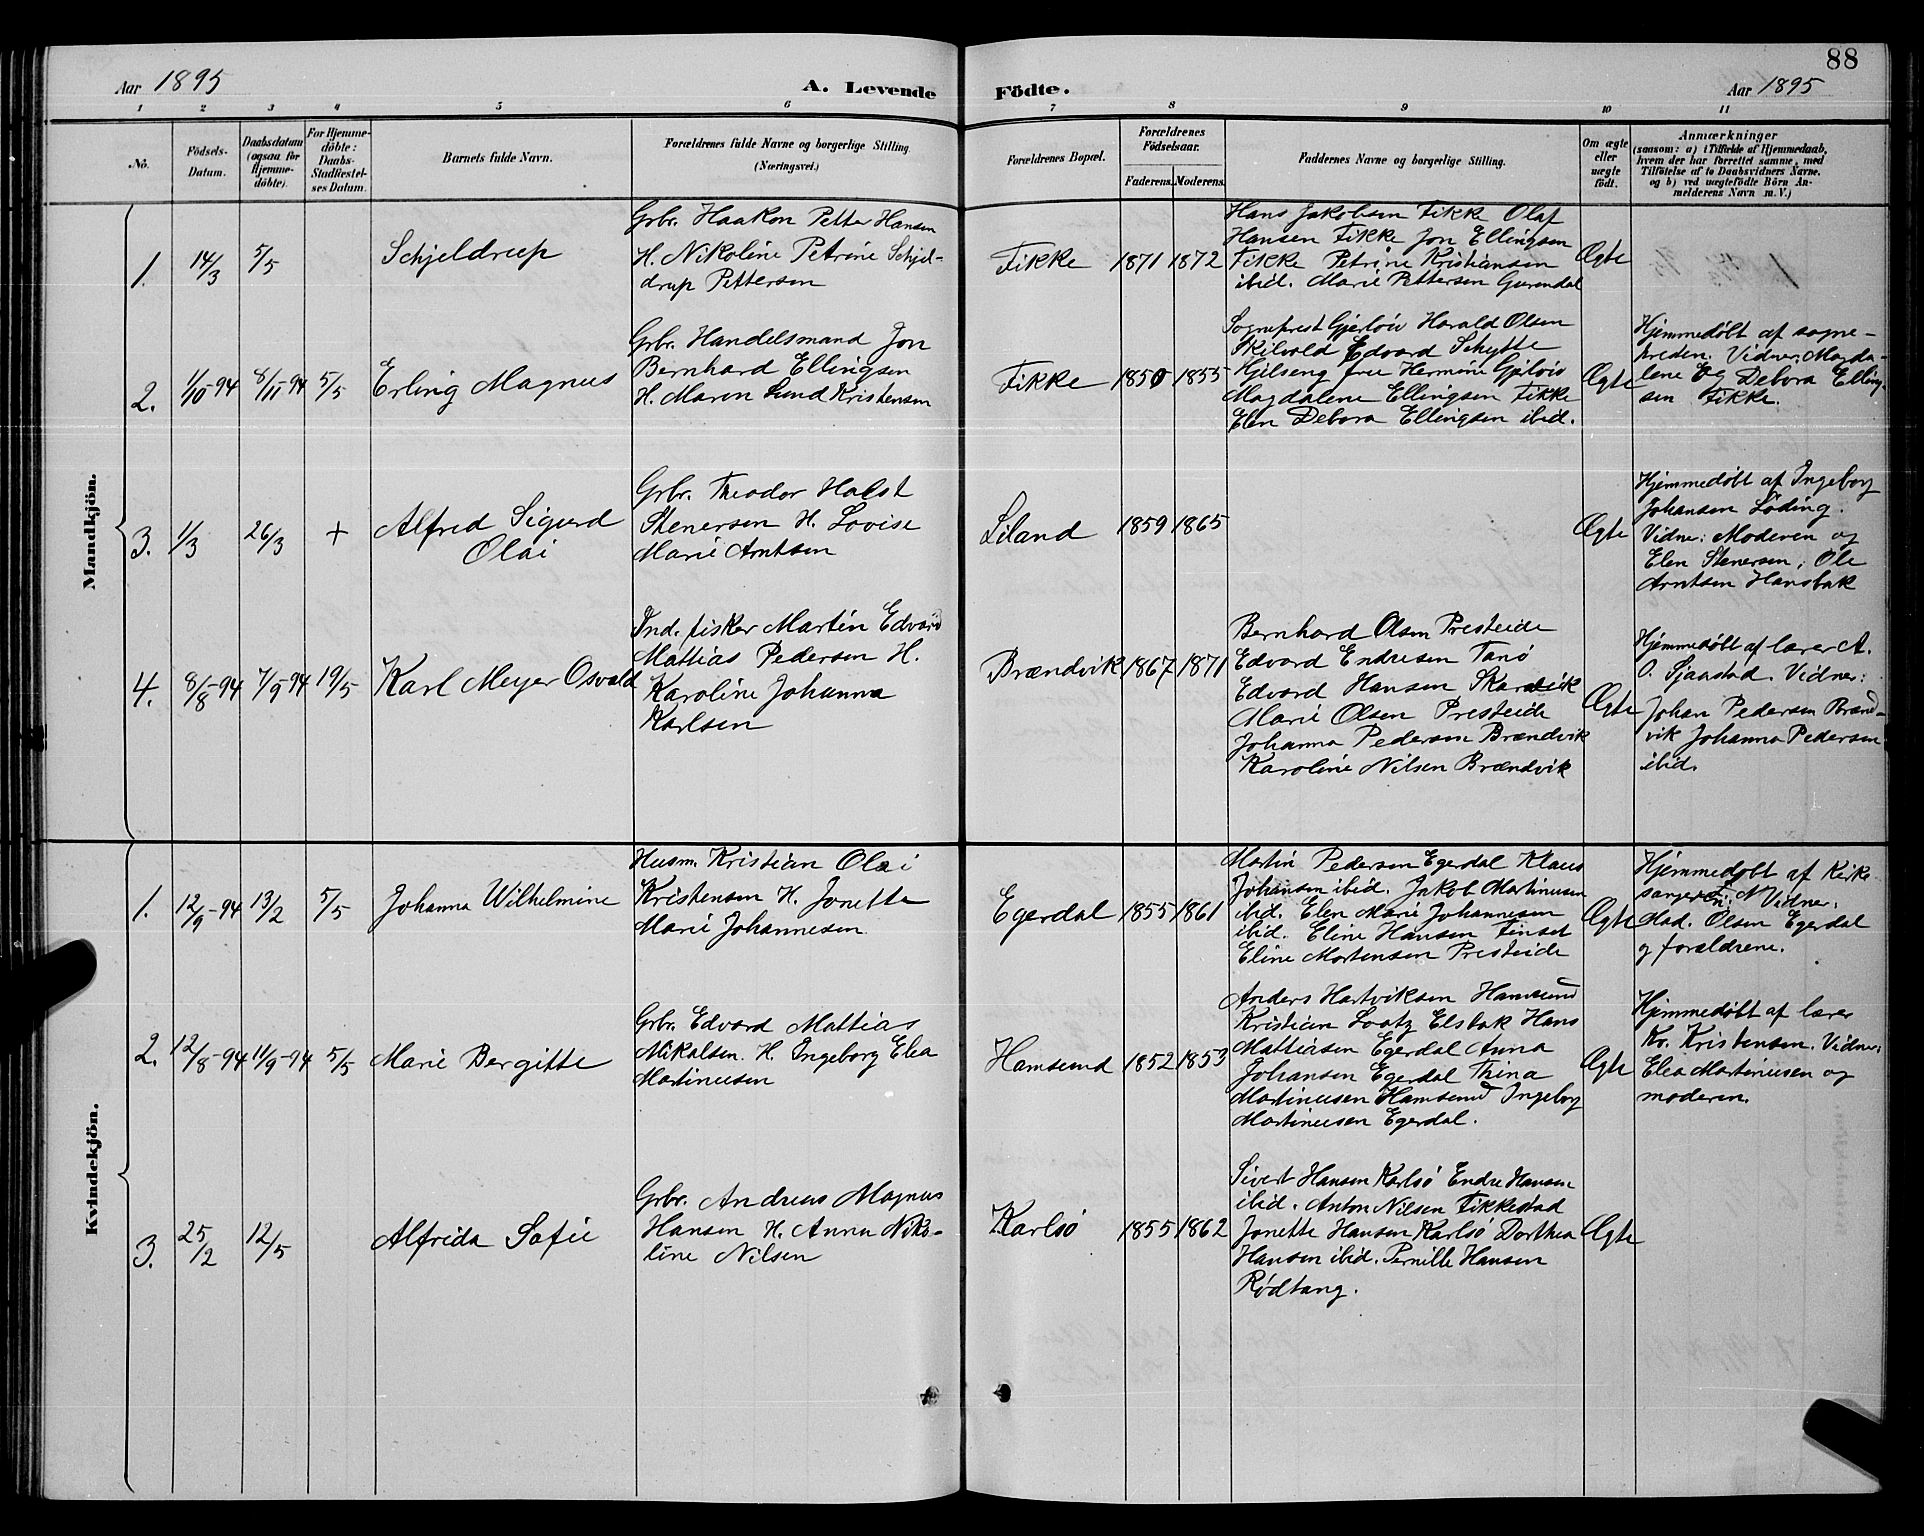 88
Aar 1895
A. Levende
Födte.
Aar 1895
1 2 3 4 5 6 7 8 9 10 11
No.
Födsels-
Datum.
Daabsdatum
(ogsaa for
Hjemme-
döbte).
For Hjemme-
döbte:
Daabs-
Stadfæstel-
ses Datum.
Barnets fulde Navn.
Forældrenes fulde Navne og borgerlige Stilling
(Næringsvei.)
Forældrenes Bopæl.
Forældrenes
Födselsaar.
Faderens. Moderens.
Faddernes Navne og borgerlige Stilling.
Om ægte
eller
uægte
födt.
Anmærkninger
(saasom: a) i Tilfælde af Hjemmedaab,
hvem der har forrettet samme, med
Tilföielse af to Daabsvidners Navne.
og b) ved uægtefödte Börn An-
melderens Navn m. V.)
Mandkjön.
1. 14/3 5/5 Schjeldrup
Grbr. Haakon Petter Hansen
H. Nikoline Petrine Schjel-
drup Pettersen
Fikke 1871 1872
Hans Jakobsen Fikke Olaf
Hansen Fikke Jon Ellingsen
Fikke Petrine Kristiansen
ibid. Marie Pettersen Gurendal
Ægte
2. 1/10-94 8/11-94 5/5 Erling Magnus
Grbr. Handelsmand Jon
Bernhard Ellingsen
H. Maren Lund Kristensen
Fikke 1850 1855
Sogneprest Gjerløiv Harald Olsen
Skilvold Edvard Schytte
Hjelseng frue Hermine Gjæløiv
Magdalene Ellingsen Fikke
Elen Debora Ellingsen ibid.
Ægte
Hjemmedøbt af sogne-
presten. Vidner: Magda-
lene og Debora Elling-
sen Fikke.
3. 1/3 26/3 + Alfred Sigurd
Olai
Grbr. Theodor Holst
Stenersen H. Lovise
Marie Arntsen
Liland 1859 1865
Ægte
Hjemmedøbt af Ingeborg
Johansen Løding.
Vidner: Moderen og
Elen Stenersen, Ole
Arntsen Hansbak
4. 8/8-94 7/9-94 19/5 Karl Meyer Osvald
Ind. fisker Martin Edvard
Mattias Pedersen H.
Karoline Johanna
Karlsen
Brændvik 1867 1871
Bernhard Olsen Presteide
Edvard Endresen Tanø
Edvard Hansen Skarvik
Marie Olsen Presteide
Johanna Pedersen Brændvik
Karoline Nilsen Brændvik
Ægte
Hjemmedøbt af lærer A.
O. Sjaastad. Vidner:
Johan Pedersen Brænd-
vik Johanna Pedersen
ibid.
Kvindekjön.
1. 12/9-94 13/2 5/5 Johanna Wilhelmine
Husm. Kristian Olai
Kristensen H. Jonette
Marie Johannesen
Egerdal 1855 1861
Martin Pedersen Egerdal Klaus
Johansen ibid. Jakob Martinusen
ibid. Elen Marie Johannesen
ibid. Eline Hansen Finset
Eline Mortensen Presteide
Ægte
Hjemmedøbt af Kirke
sanger N Vidner:
Mad. Olsen Egerdal
og forældrene.
2. 12/8-94 11/9-94 5/5 Marie Bergitte
Grbr. Edvard Mattias
Mikalsen. H. Ingeborg Elea
Martinusen
Hamsund 1852 1853
Anders Hartviksen Hamsund
Kristian Lootz Elsbak Hans
Mattiasen Egerdal Anna
Johansen Egerdal Thina
Martinusen Hamsund Ingeborg
Martinusen Egerdal.
Ægte
Hjemmedøbt af lærer
Kr. Kristensen. Vidner:
Elea Martinusen og
moderen.
3. 25/2 12/5 Alfrida Sofie
Grbr. Andreas Magnus
Hansen H. Anna Niko-
line Nilsen
Karlsø 1855 1862
Sivert Hansen Karlsø Endre Hansen
ibid. Anton Nilsen Fikkestad
Jonette Hansen Karlsø Dorthea
Hansen ibid. Pernille Hansen
Rødtang.
Ægte